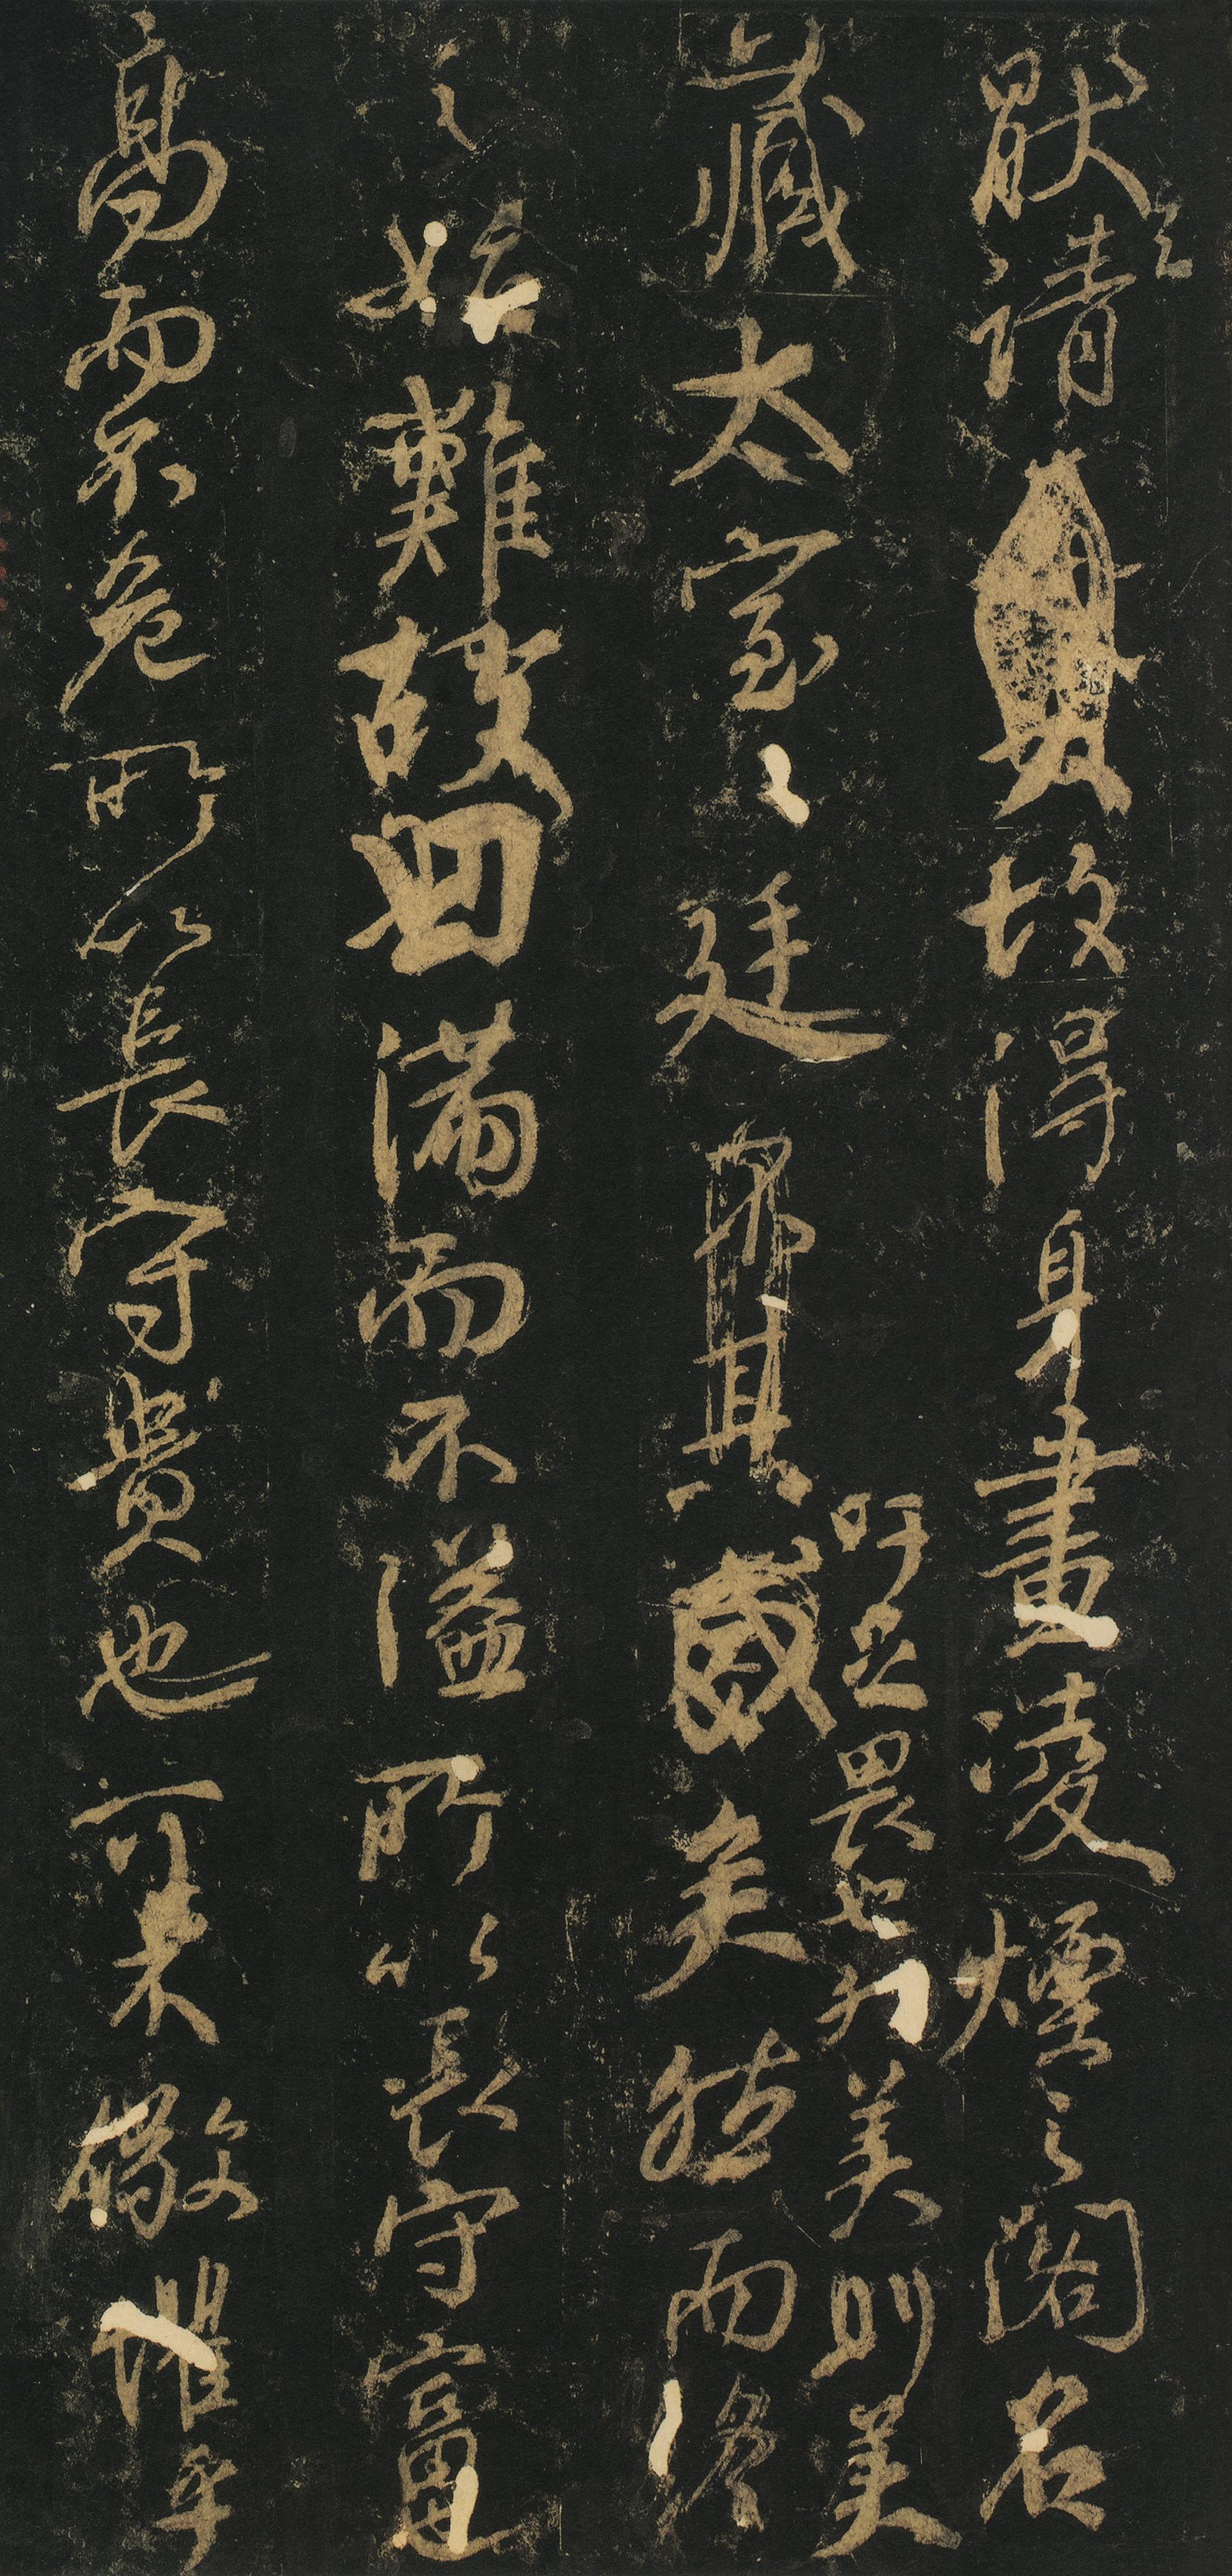 猒之請故得身畫凌煙之閣名
藏太室之廷
吁足畏也然美則美
矣然而終
之始難故曰滿而不溢所以長守富也
高而不危所以長守貴也可不儆懼乎